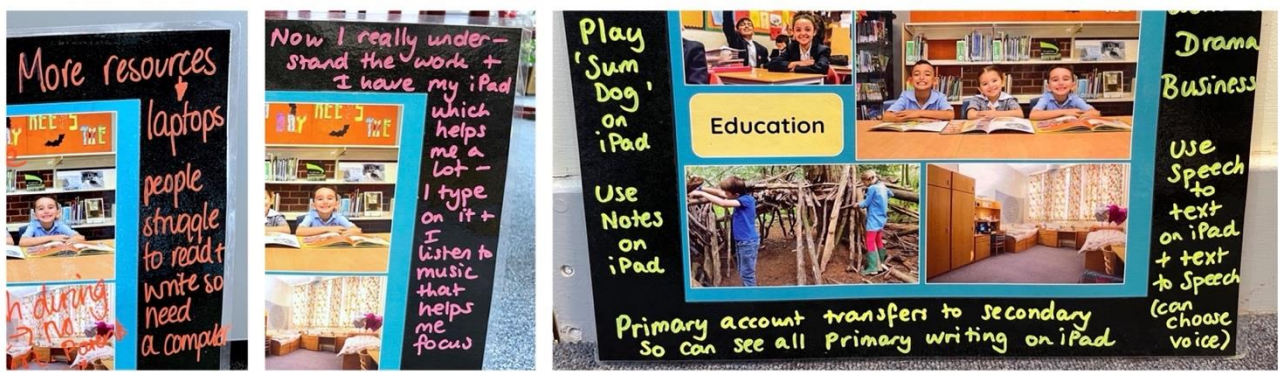 More resources
laptops
people
struggle
to read +
write so
need
a computer
during
no
Now I really under-
stand the work +
I have my iPad
which
helps
me a
lot -
I type
on it +
I
listen to
music
that
helps
me
focus
Play
'Sum
Dog'
on
iPad
Use
Notes
on
iPad
Education
Drama
Business
Use
Speech
to
text
on iPad
+ text
to Speech
(can
choose
voice)
Primary account transfers to secondary
so can see all Primary writing on iPad